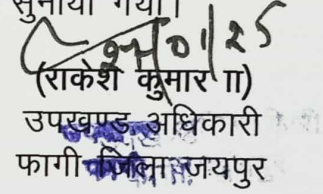 सुनाया गया।
27/01/25
(राकेश कुमार II)
उपखण्ड अधिकारी
फागी जिला जयपुर